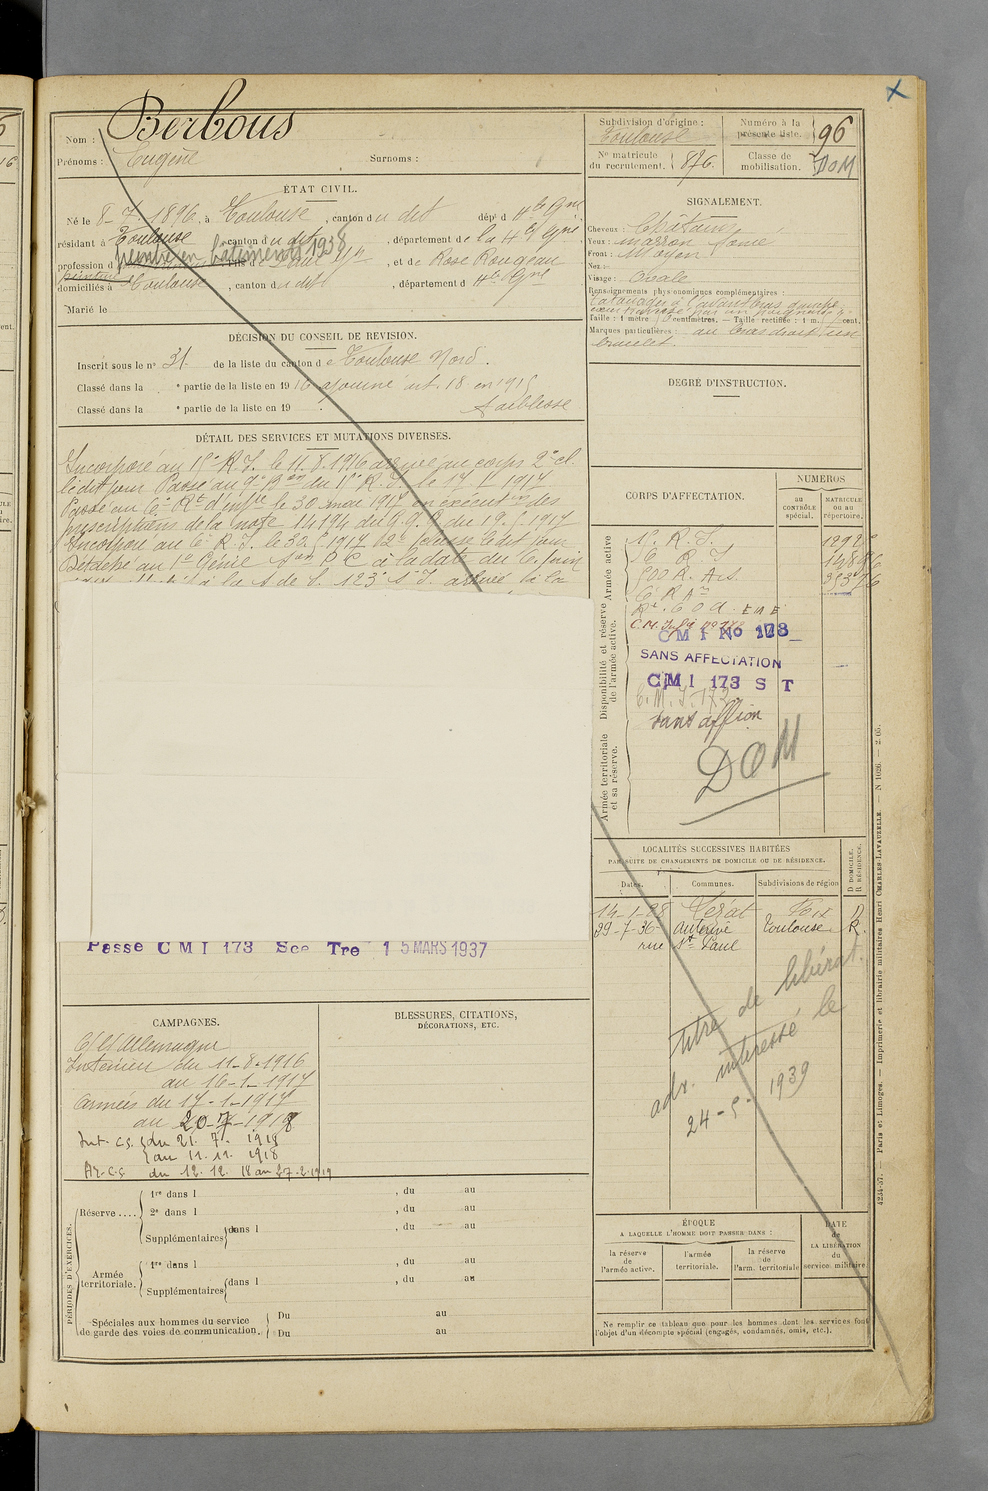 Nom : Berbous
Prénoms : Eugène Surnoms :
ÉTAT CIVIL.
Né le 8-7-1896, à Toulouse, canton du dit dépt d Hte Gne
résidant à Toulouse, canton du dit, département de la Hte Gne
profession d peintre en bâtiments 1938 et de Rose Rougeau
domiciliés à Toulouse, canton du dit, département d Hte Gne
Marié le
DÉCISION DU CONSEIL DE REVISION.
Inscrit sous le n° 31 de la liste du canton de Toulouse Nord.
Classé dans la e partie de la liste en 1916 ajourné art. 18 en 1915
Classé dans la e partie de la liste en 19 faiblesse
DÉTAIL DES SERVICES ET MUTATIONS DIVERSES.
Incorporé au 15e R.I. le 11.8.1916 arrivé au corps 2e cl.
le dit jour Passé au 9e Bon du R.I. le 17.1.1917
Passé au Rt d'inf le 30 mai 1917 en exécution des
prescriptions de la note 14194 du G.Q.G du 19 1917
Incorporé au R.I. le 30 5 1917 le dit jour
Détaché au 1er Génie à la date du juin
123e arrivé à la
Passe C M I 173 Sce Tre 15 MARS 1937
CAMPAGNES.
Cte Allemagne
Intérieur du 11-8-1916
au 16-1-1917
Armées du 17-1-1917
au 20-7-1918
Int. c.s. du 21. 7. 1918
au 11. 11. 1918
Ar-c.s du 12. 12. 18 au 27-2-1919
BLESSURES, CITATIONS,
DÉCORATIONS, ETC.
PÉRIODES D'EXERCICES.
Réserve ....
1re dans l , du au
2e dans l , du au
Supplémentaires dans l , du au
Armée territoriale.
1re dans l , du au
Supplémentaires dans l , du au
Spéciales aux hommes du service
de garde des voies de communication.
Du au
Du au
Subdivision d'origine :
Toulouse
Numéro à la
présente liste.
96
N° matricule
du recrutement.
876
Classe de
mobilisation.
DOM
SIGNALEMENT.
Cheveux : Châtains
Yeux : marron
Front : moyen
Nez :
Visage : Ovale
Renseignements physionomiques complémentaires :
Tatouages à l'avant bras gauche
Taille : 1 mètre centimètres. — Taille rectifiée : 1 m. cent.
Marques particulières : au bras droit un
bracelet.
DEGRÉ D'INSTRUCTION.
CORPS D'AFFECTATION.
NUMÉROS
AU
CONTRÔLE
spécial.
MATRICULE
OU AU
répertoire.
Armée active
Disponibilité et réserve
de l'armée active.
Armée territoriale
et sa réserve.
15e R.I.
R I
500 R. Art.
C M I No 173
SANS AFFECTATION
C M I 173 S T
C.M.I. 173
sans affion
DOM
LOCALITÉS SUCCESSIVES HABITÉES
PAR SUITE DE CHANGEMENTS DE DOMICILE OU DE RÉSIDENCE.
Dates. Communes. Subdivisions de région
D DOMICILE.
R RÉSIDENCE.
14-1-28 D
29-7-36 Auterive Toulouse R.
rue St Paul
titre de libérat.
adr. intéressé le
24-5-1939
ÉPOQUE
A LAQUELLE L'HOMME DOIT PASSER DANS :
la réserve
de
l'armée active.
l'armée
territoriale.
la réserve
de
l'arm. territoriale
DATE
de
LA LIBÉRATION
du
service militaire
Ne remplir ce tableau que pour les hommes dont les services font
l'objet d'un décompte spécial (engagés, condamnés, omis, etc.).
4234-37. — Paris et Limoges. — Imprimerie et librairie militaires Henri CHARLES-LAVAUZELLE. — N 1026. — 2-05.